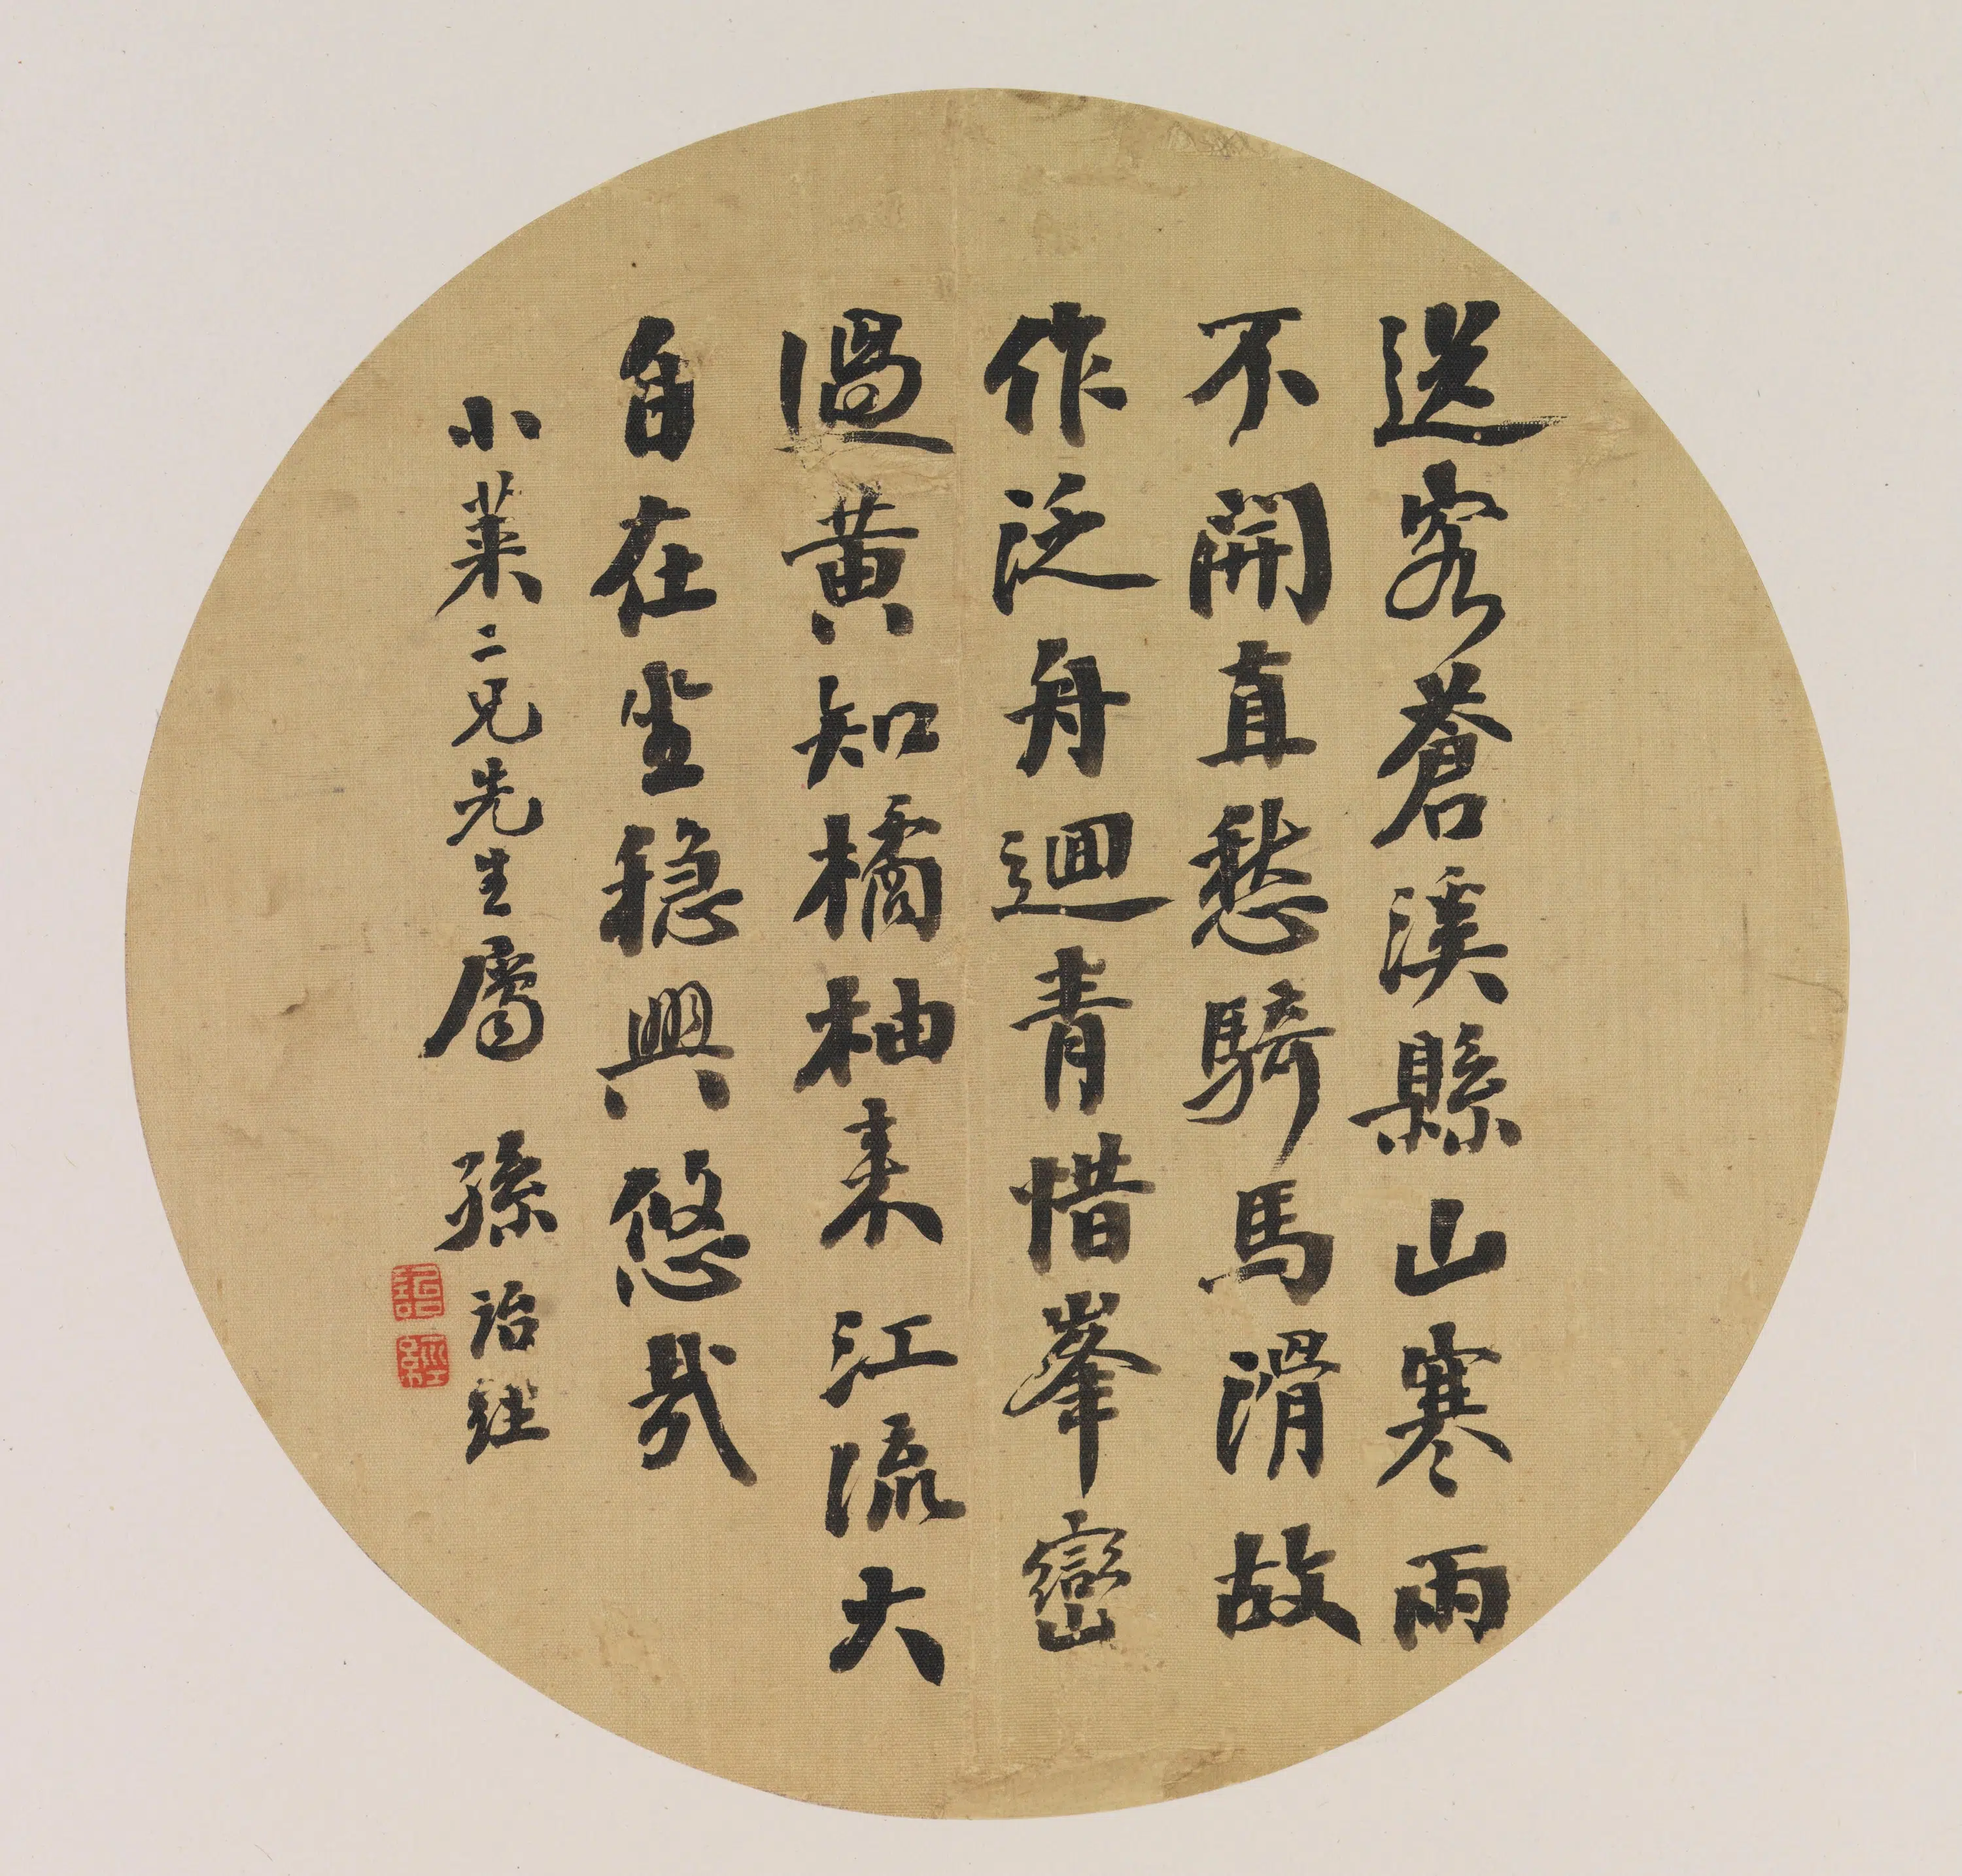 送客蒼溪縣山寒雨
不開直愁騎馬滑故
作泛舟迴青惜峯巒
過黃知橘柚来江流大
自在坐穏興悠哉
小萊二兄先生屬 孫詒經
詒
經